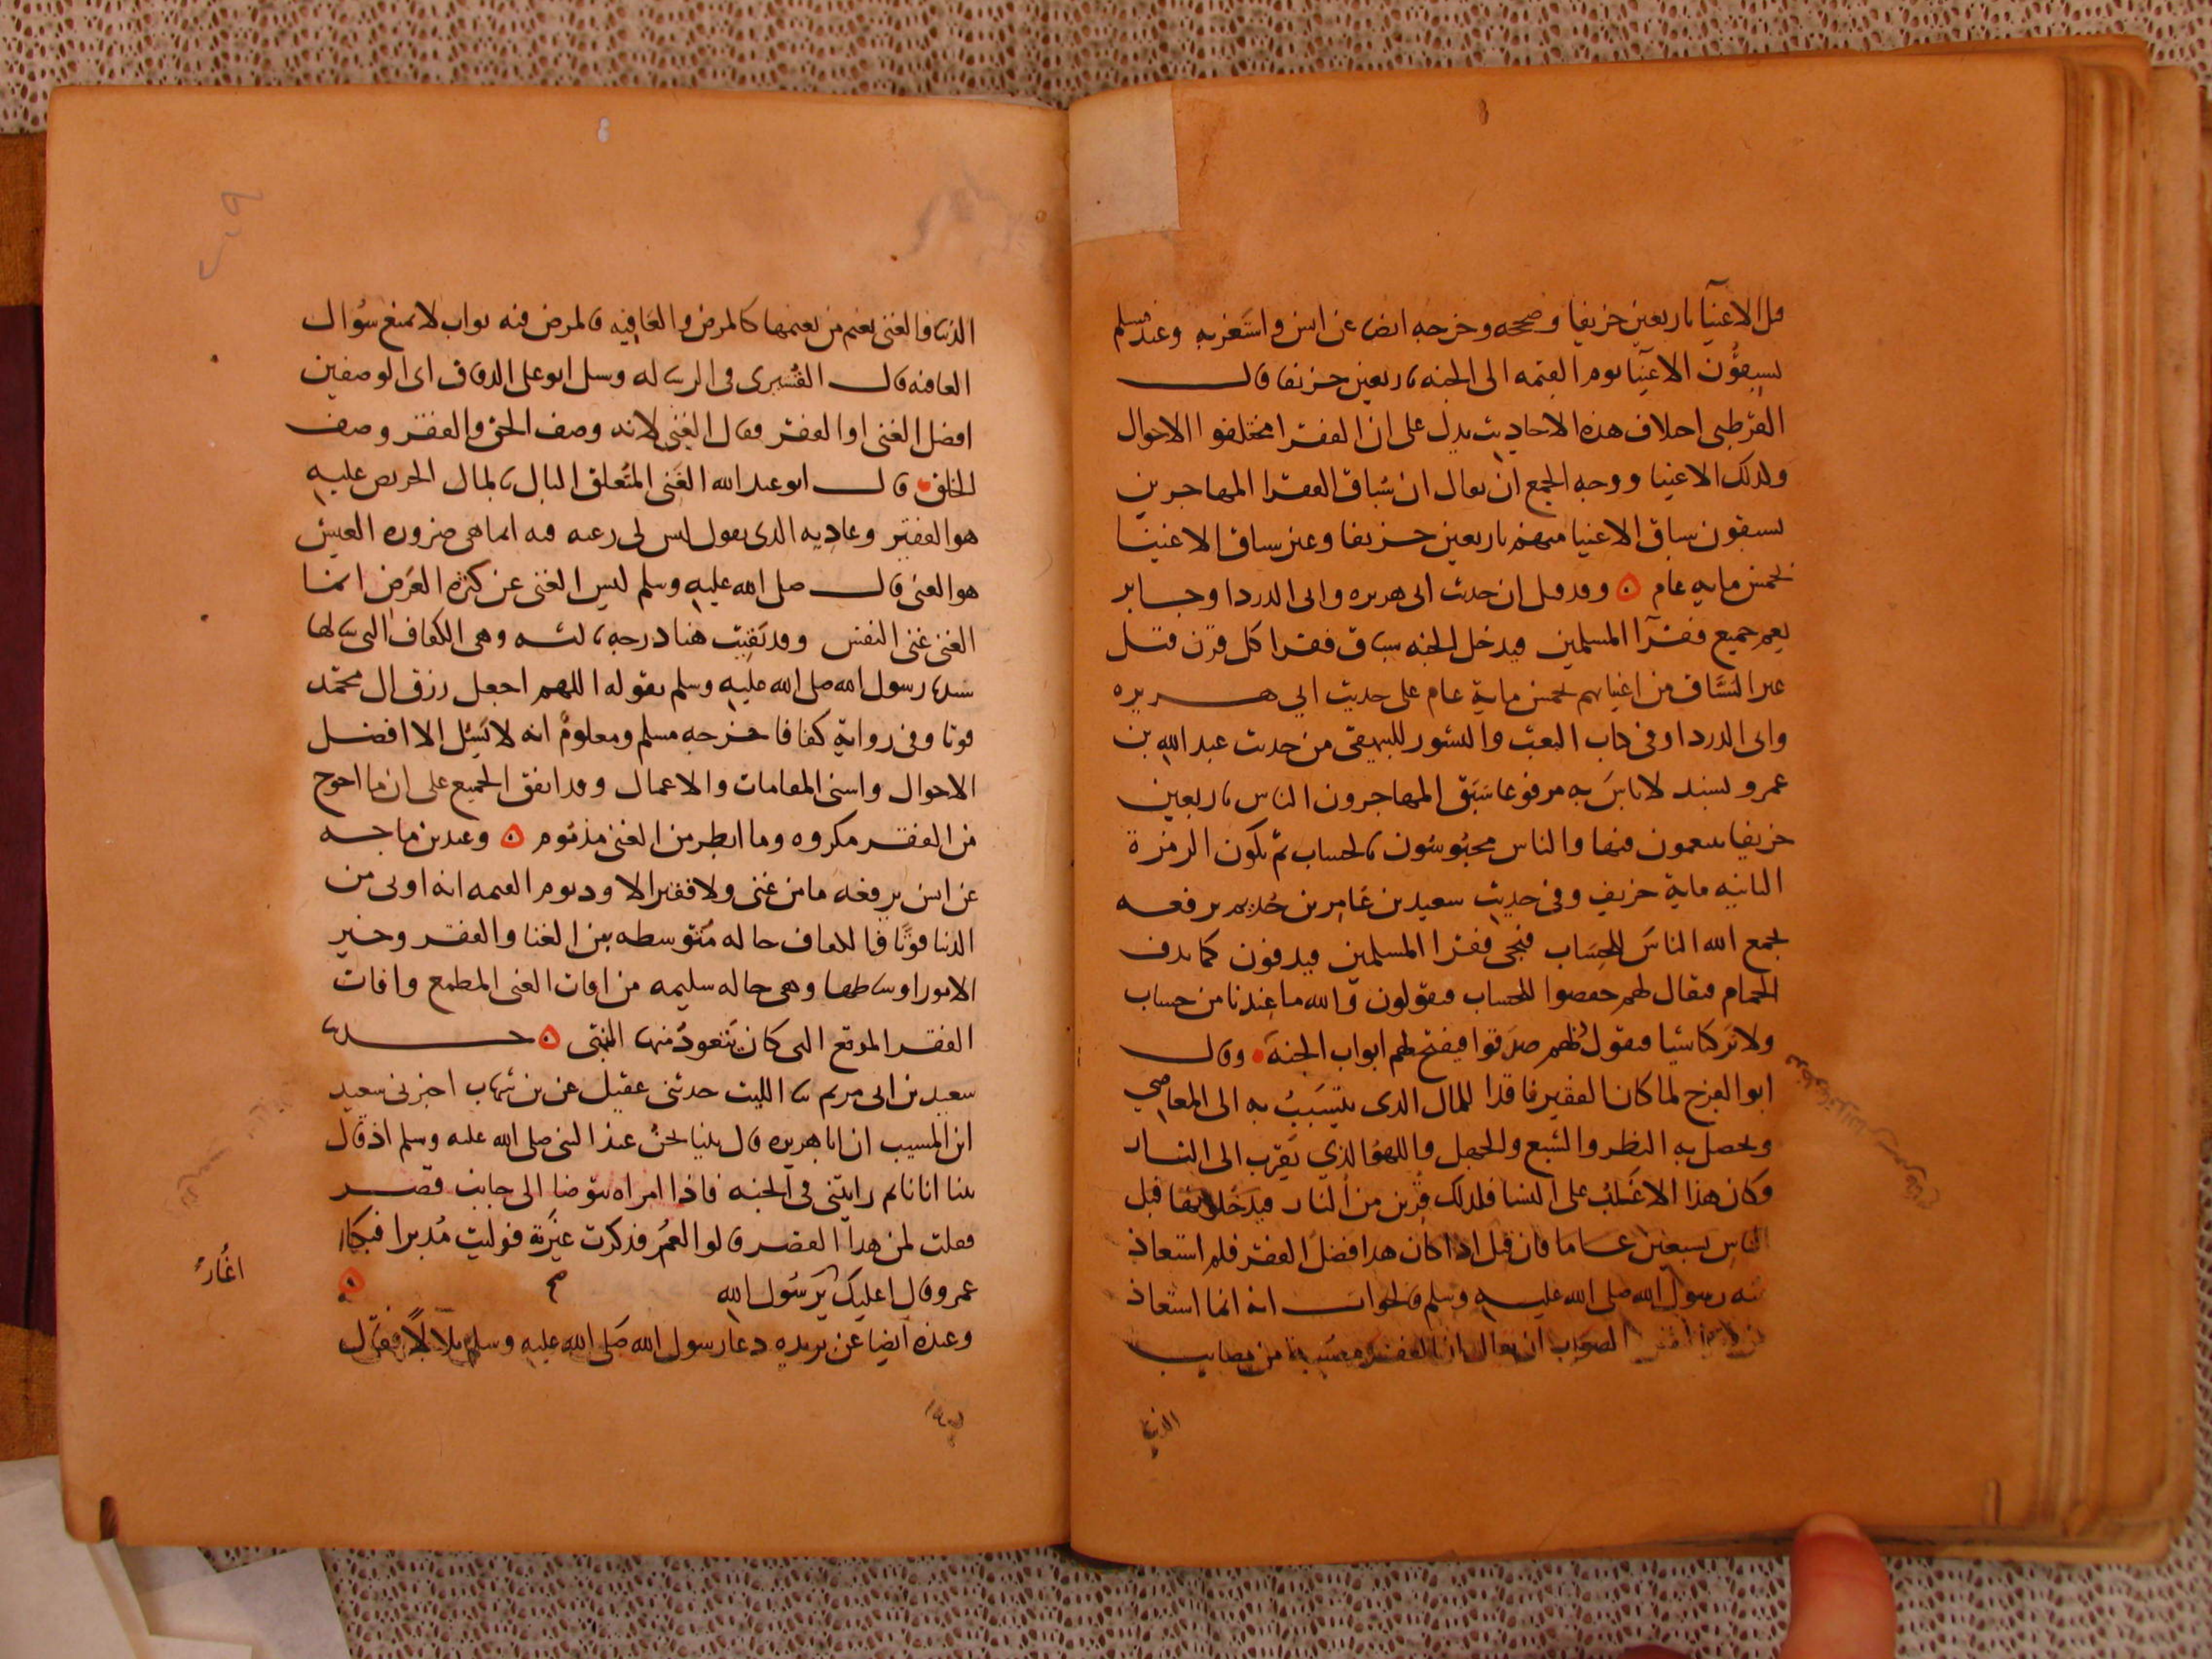 قبل الاغنيآ باربعين خريفا وصححه وخرجه ايضا عن انس واستغربه وعند مسلم
يسبقون الاغنيآ يوم القيمه الى الجنه باربعين خريفا قال
القرطبي اختلاف هذه الاحاديث يدل على ان الفقرا مختلفوا الاحوال
وكذلك الاغنيا ووجه الجمع ان يقال ان سباق الفقرا المهاجرين
يسبقون سباق الاغنيا منهم باربعين خريفا وغير سباق الاغنيا
بخمس مايه عام وقد قيل ان حديث ابى هريره وابى الدردا وجابر
يعم جميع فقرآ المسلمين فيدخل الجنه سباق فقرا كل قرن قبل
غير السباق من اغنيايهم بخمس ماية عام على حديث ابي هريره
وابى الدردا وفى كتاب البعث والنشور للبيهقى من حديث عبد الله بن
عمرو بسند لا باس به مرفوعا سبق المهاجرون الناس باربعين
خريفا يتنعمون فيها والناس محبوسون بالحساب ثم تكون الزمرة
الثانيه ماية خريف وفى حديث سعيد بن عامر بن حذيم يرفعه
يجمع الله الناس للحساب فيجى فقرا المسلمين فيدفون كما يدف
الحمام فيقال لهم قفوا للحساب فيقولون والله ما عندنا من حساب
ولا تركنا شيا فيقول لهم صدقوا فيفتح لهم ابواب الجنة وقال
ابو الفرج لما كان الفقير فاقدا للمال الذى يتسبب به الى المعاصي
ويحصل به البطر والشبع والجهل واللهو الذي يقرب الى النار
وكان هذا الاغلب على النسا فلذلك قربن من النار فيدخلونها قبل
الناس بسبعين عاما فان قيل اذا كان هذا فضل الفقر فلم استعاذ
منه رسول الله صلى الله عليه وسلم فالجواب انه انما استعاذ
الصواب ان يقال ان الفقر مصيبة من مصايب
الدنيا
الدنيا فالغنى نعيم من نعيمها كالمرض والعافيه فالمرض فيه ثواب لا يمنع سؤال
العافيه قال القشيرى فى الرساله وسيل ابو على الدقاق اى الوصفين
افضل الغنى او الفقر فقال الغنى لانه وصف الحق والفقر وصف
الخلق قال ابو عبد الله الغنى المتعلق البال بالمال الحريص عليه
هو الفقير وعاديه الذى يقول ليس لى رغبه فيه انما هى ضروره العيش
هو الغنى قال صلى الله عليه وسلم ليس الغنى عن كثره العرض انما
الغنى غنى النفس وقد بقيت هنا درجه ثالثه وهى الكفاف التى سالها
سيدنا رسول الله صلى الله عليه وسلم بقوله اللهم اجعل رزق ال محمد
قوتا وفى رواية كفافا خرجه مسلم ومعلوم انه لا يسئل الا افضل
الاحوال واسنى المقامات والاعمال وقد اتفق الجميع على ان ما احوج
من الفقر مكروه وما ابطر من الغنى مذموم وعند بن ماجه
عن انس يرفعه ما من غنى ولا فقير الا ود يوم القيمه انه اوتى من
الدنيا قوتا فالكفاف حاله متوسطه بين الغنا والفقر وخير
الامور اوساطها وهى حاله سليمه من افات الغنى المطمع وافات
الفقر المدقع التى كان يتعوذ منها النبى حدثنا
سعيد بن ابى مريم ثنا الليث حدثنى عقيل عن بن شهاب اخبرنى سعيد
ابن المسيب ان ابا هريره قال بينا نحن عند النبى صلى الله عليه وسلم اذ قال
بينا انا نايم رايتنى فى الجنه فاذا امراه تتوضا الى جانب قصر
فقلت لمن هذا القصر قالوا لعمر فذكرت غيرته فوليت مدبرا فبكا
عمر وقال اعليك يرسول الله صح
اغار
وعنده ايضا عن بريده دعا رسول الله صلى الله عليه وسلم بلالا فقال